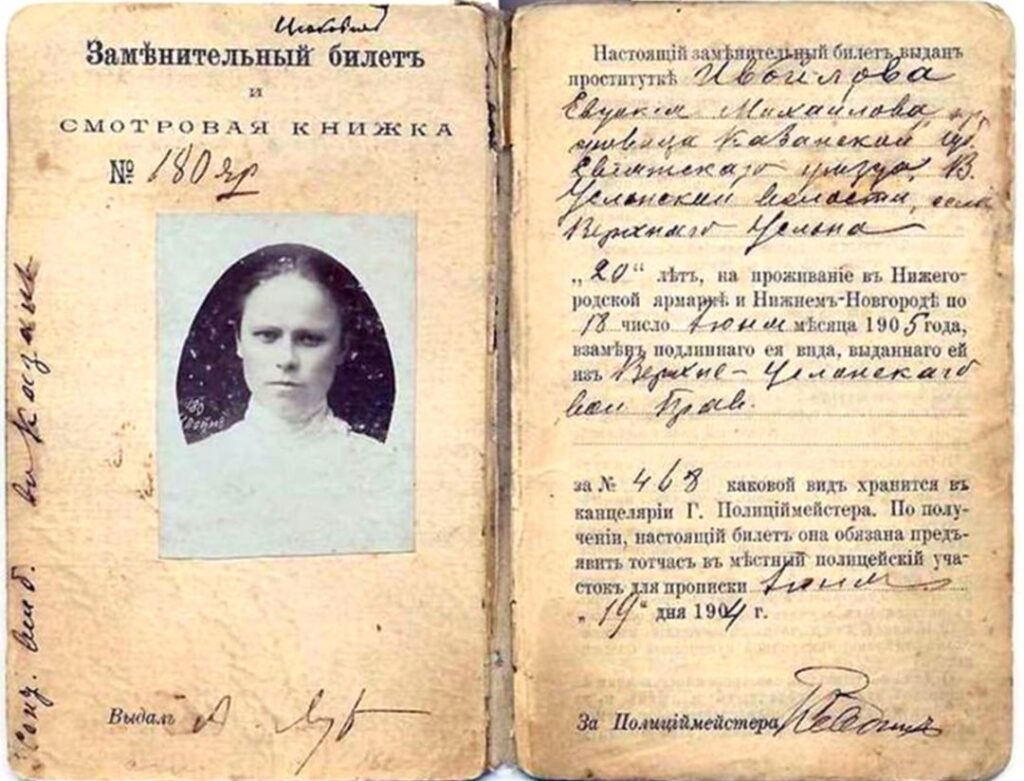 Замѣнительный билетъ
и
СМОТРОВАЯ КНИЖКА
№ 180 яр
Выдалъ А.
Настоящій замѣнительный билетъ выданъ
проституткѣ Ивойлова
Евдокія Михайлова
Казанской губ.
Свіяжскаго уѣзда, В.
Услонской волости, села
Верхняго Услона
„20“ лѣтъ, на проживаніе въ Нижего-
родской ярмаркѣ и Нижнемъ-Новгородѣ по
18 число Іюня мѣсяца 1905 года,
взамѣнъ подлиннаго ея вида, выданнаго ей
изъ Верхне-Услонскаго
вол Прав.
за № 468 каковой видъ хранится въ
канцеляріи Г. Полиціймейстера. По полу-
ченіи, настоящій билетъ она обязана предъ-
явить тотчасъ въ мѣстный полицейскій уча-
стокъ для прописки Іюня
„19“ дня 1904 г.
За Полиціймейстера